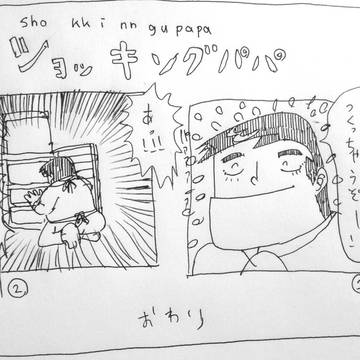 sho kk i nn gu papa
ショッキングパパ
つくっちゃうぞー!
あっ!!!
②
おわり